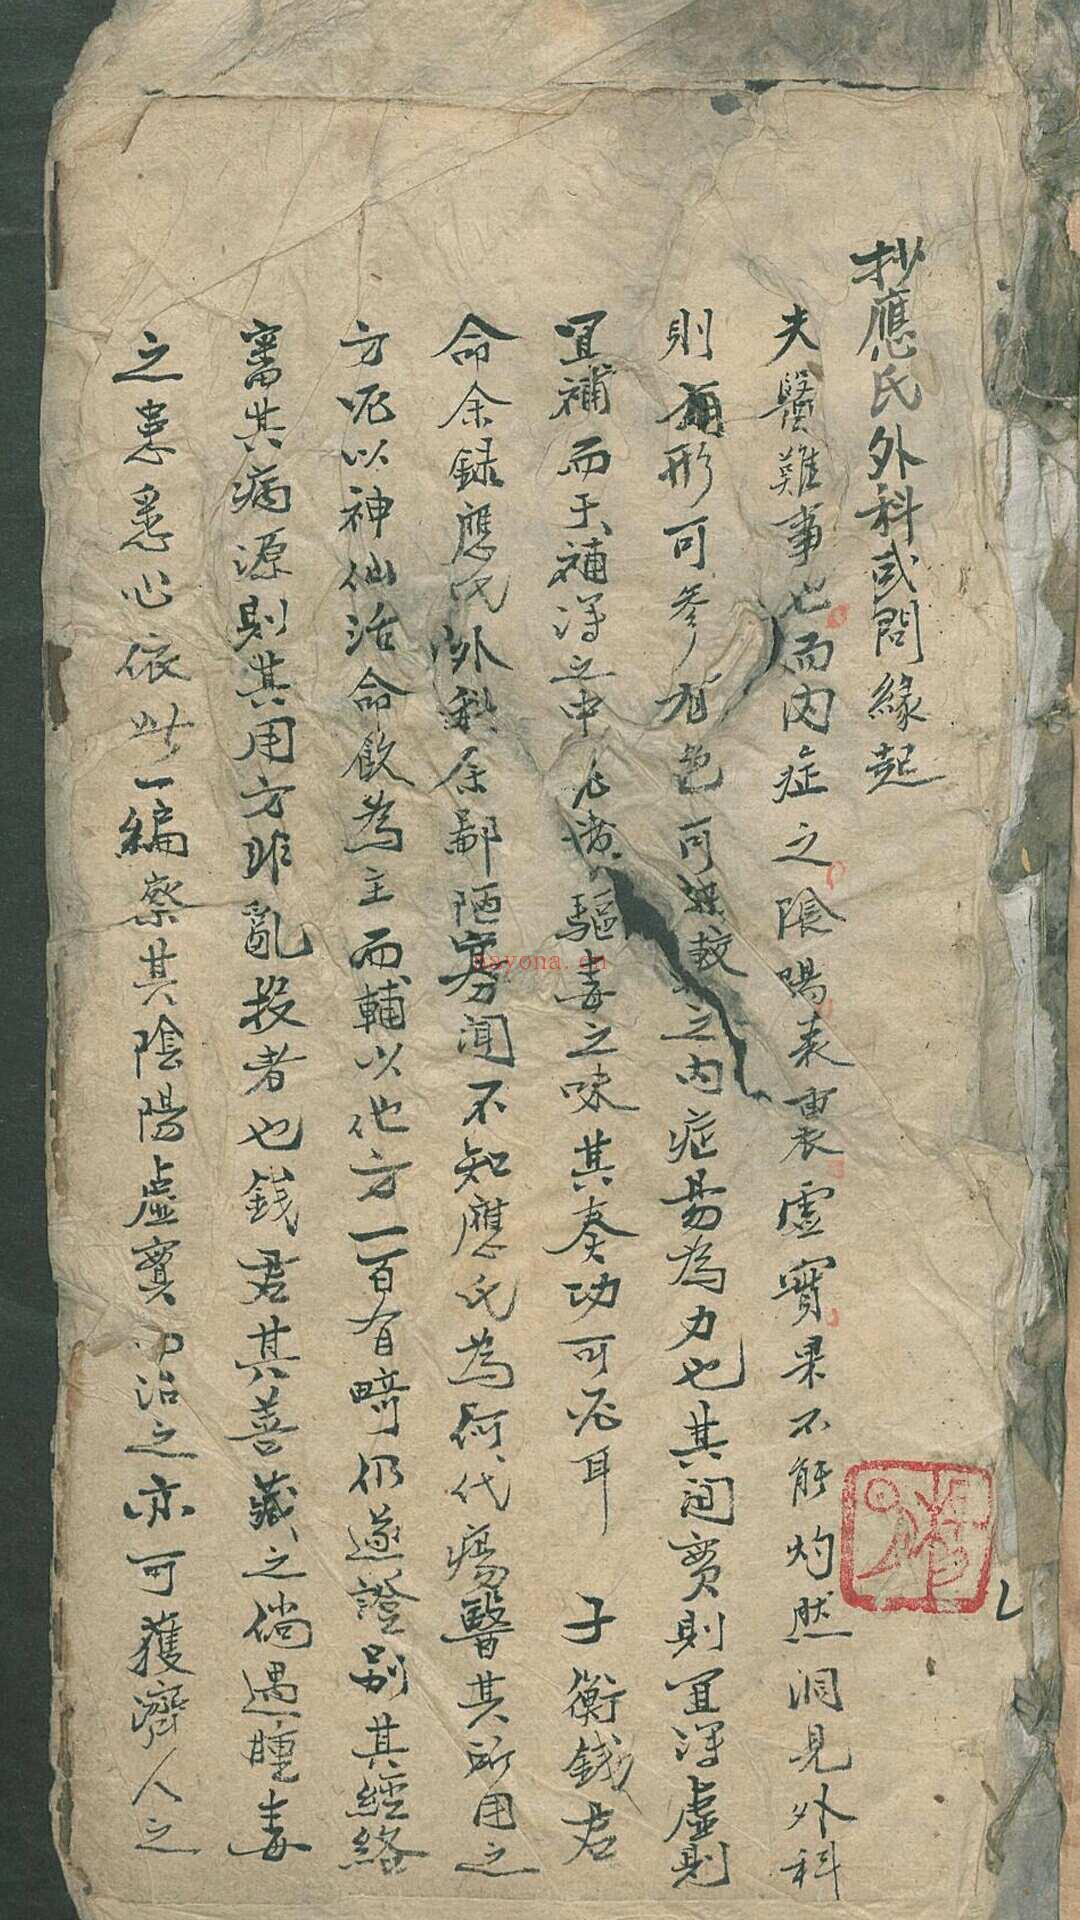 抄應氏外科或問緣起
夫醫難事也而内症之陰陽表裏虛實果不能灼然洞見外科
則有形可參有色可望較之内症易為力也其間實則宜瀉虛則
宜補而于補瀉之中尤貴驅毒之味其奏功可必耳 子衡錢君
命余録應氏外科余鄙陋寡聞不知應氏為何代瘍醫其所用之
方死以神仙活命飲為主而輔以他方一百有畸仍逐證别其經絡
審其病源則其用方非亂投者也錢君其善藏之倘遇腫毒
之患悉心依此一編察其陰陽虛實而治之亦可獲濟人之
nayona.cn